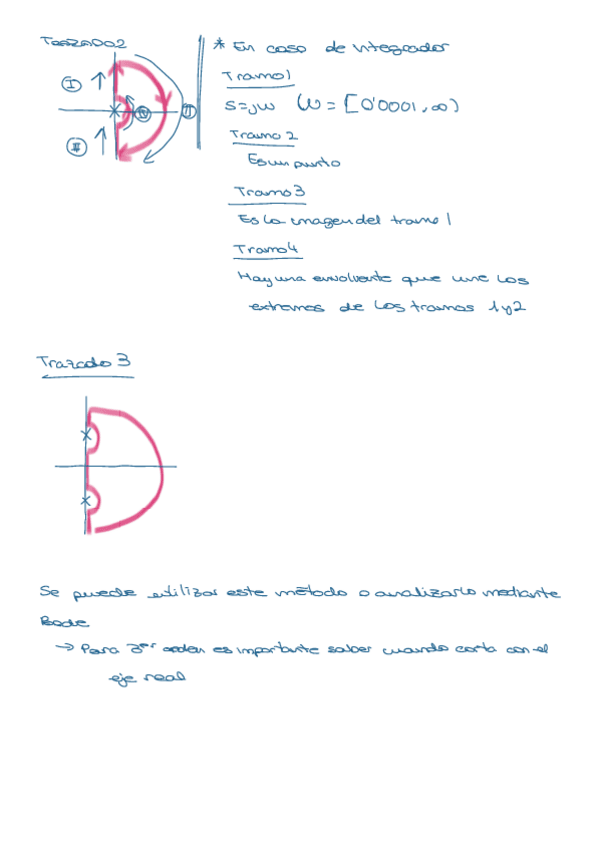 TRAZADO 2
* En caso de integrador
Tramo 1
S=jω ω = [0'0001, ∞)
Tramo 2
Es un punto
Tramo 3
Es la imagen del tramo 1
Tramo 4
Hay una envolvente que une los
extremos de los tramos 1 y 2
I
II
III
IV
Trazado 3
Se puede utilizar este método o analizarlo mediante
Bode
→ Para 3er orden es importante saber cuando corta con el
eje real